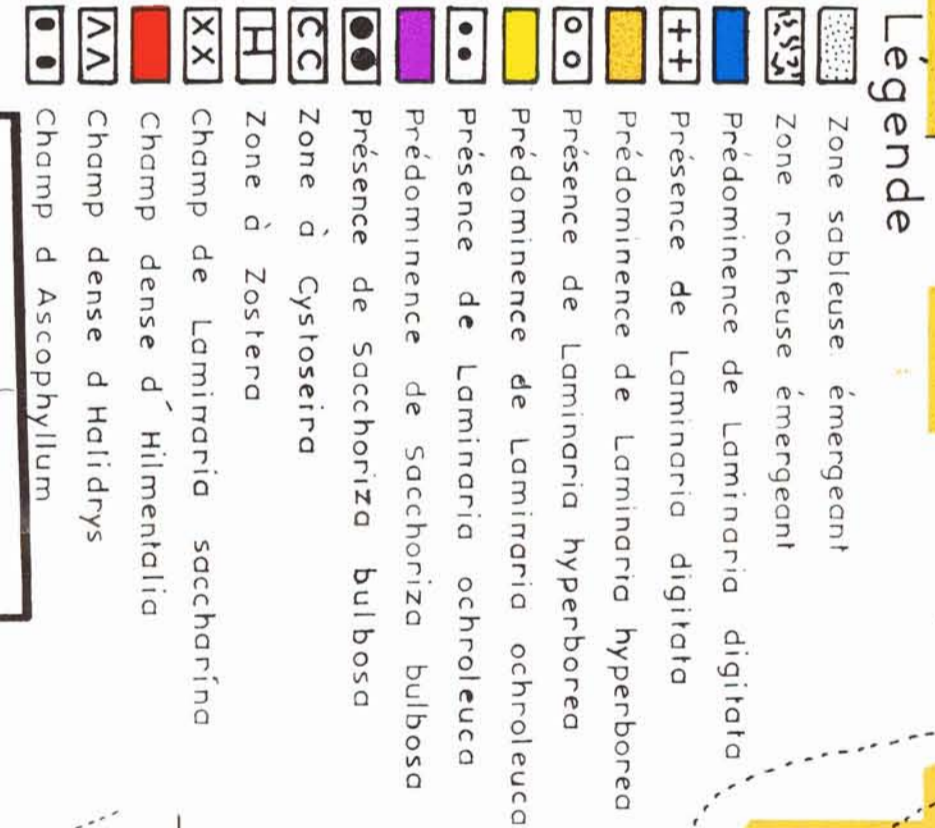 Légende
Zone sableuse émergeant
Zone rocheuse émergeant
Prédominence de Laminaria digitata
Présence de Laminaria digitata
Prédominence de Laminaria hyperborea
Présence de Laminaria hyperborea
Prédominence de Laminaria ochroleuca
Présence de Laminaria ochroleuca
Prédominence de Sacchoriza bulbosa
Présence de Sacchoriza bulbosa
CC Zone à Cystoseira
H Zone à Zostera
XX Champ de Laminaria saccharína
Champ dense d´ Hilmentalia
ΛΛ Champ dense d Halidrys
Champ d Ascophyllum